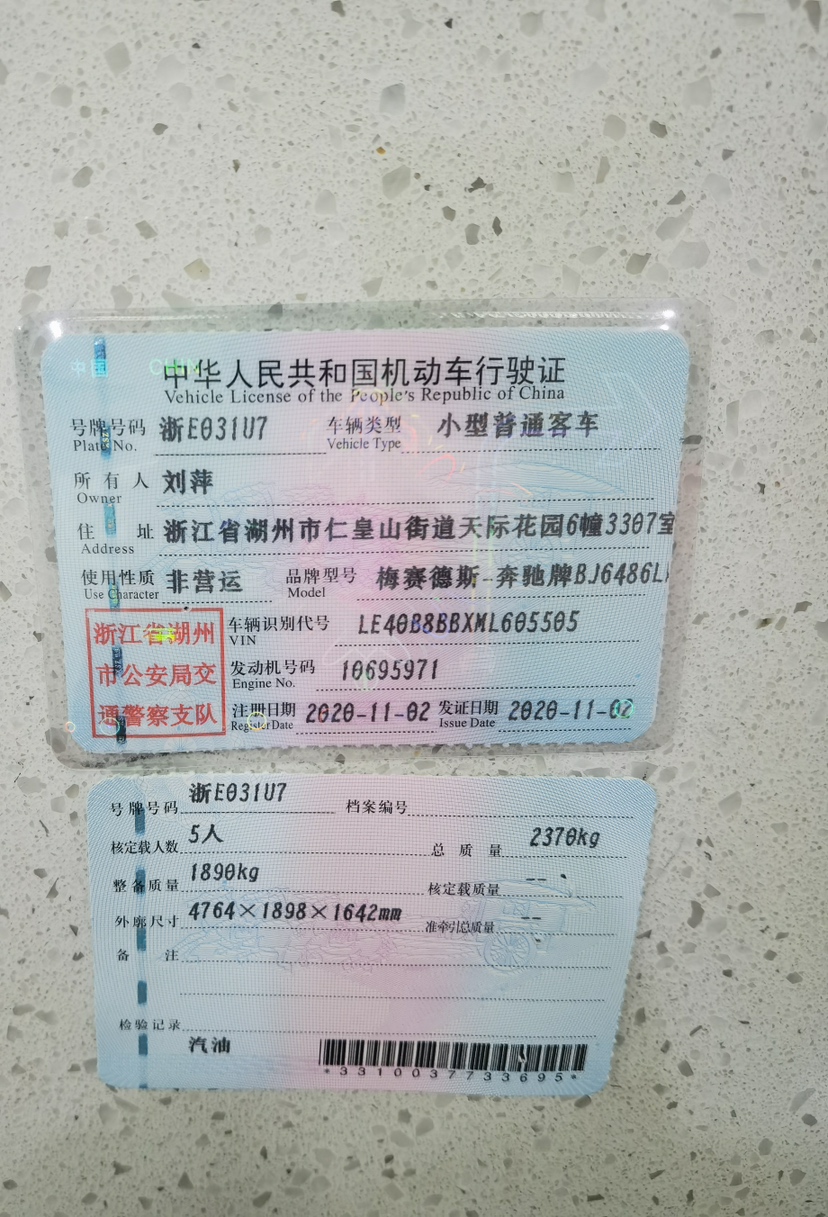 中国 CHINA
中华人民共和国机动车行驶证
Vehicle License of the People's Republic of China
号牌号码 浙E031U7 车辆类型 小型普通客车
Plate No. Vehicle Type
所有人 刘萍
Owner
住址 浙江省湖州市仁皇山街道天际花园6幢3307室
Address
使用性质 非营运 品牌型号 梅赛德斯-奔驰牌BJ6486L
Use Character Model
浙江省湖州
市公安局交
通警察支队
车辆识别代号 LE40B8BBXML605505
VIN
发动机号码 10695971
Engine No.
注册日期 2020-11-02 发证日期 2020-11-02
Register Date Issue Date
号牌号码 浙E031U7 档案编号
核定载人数 5人 总质量 2370kg
整备质量 1890kg 核定载质量 --
外廓尺寸 4764×1898×1642mm 准牵引总质量 --
备注
检验记录
汽油
*3310037733695*